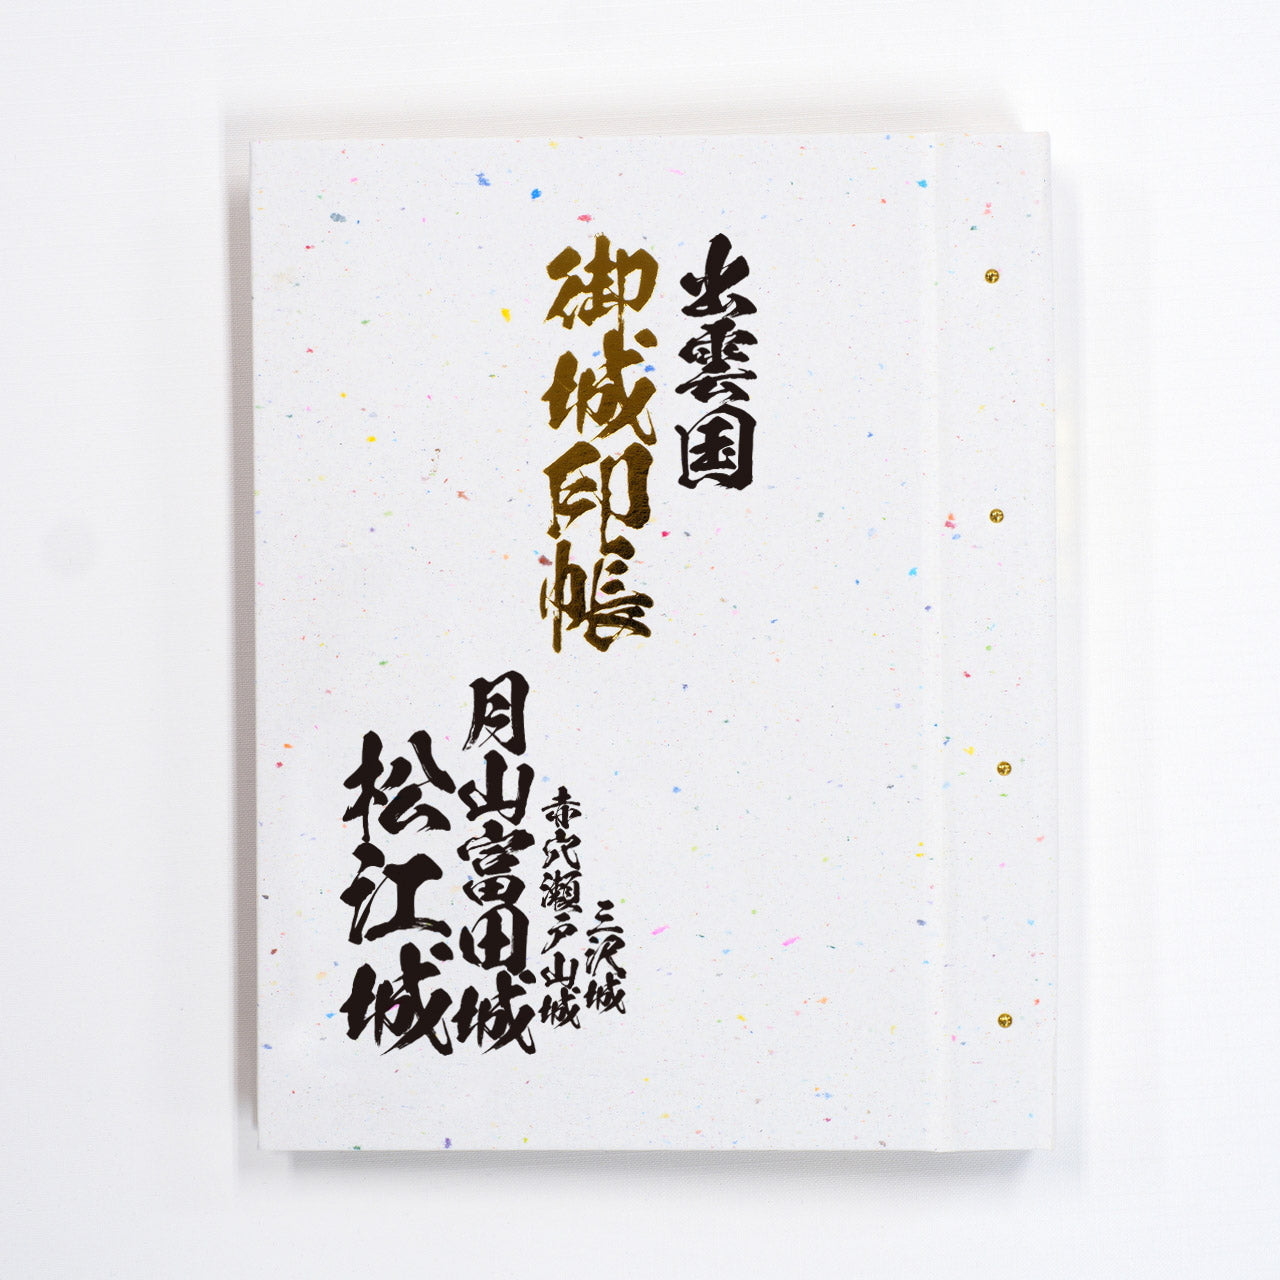 出雲国
御城印帳
三沢城
赤穴瀬戸山城
月山富田城
松江城